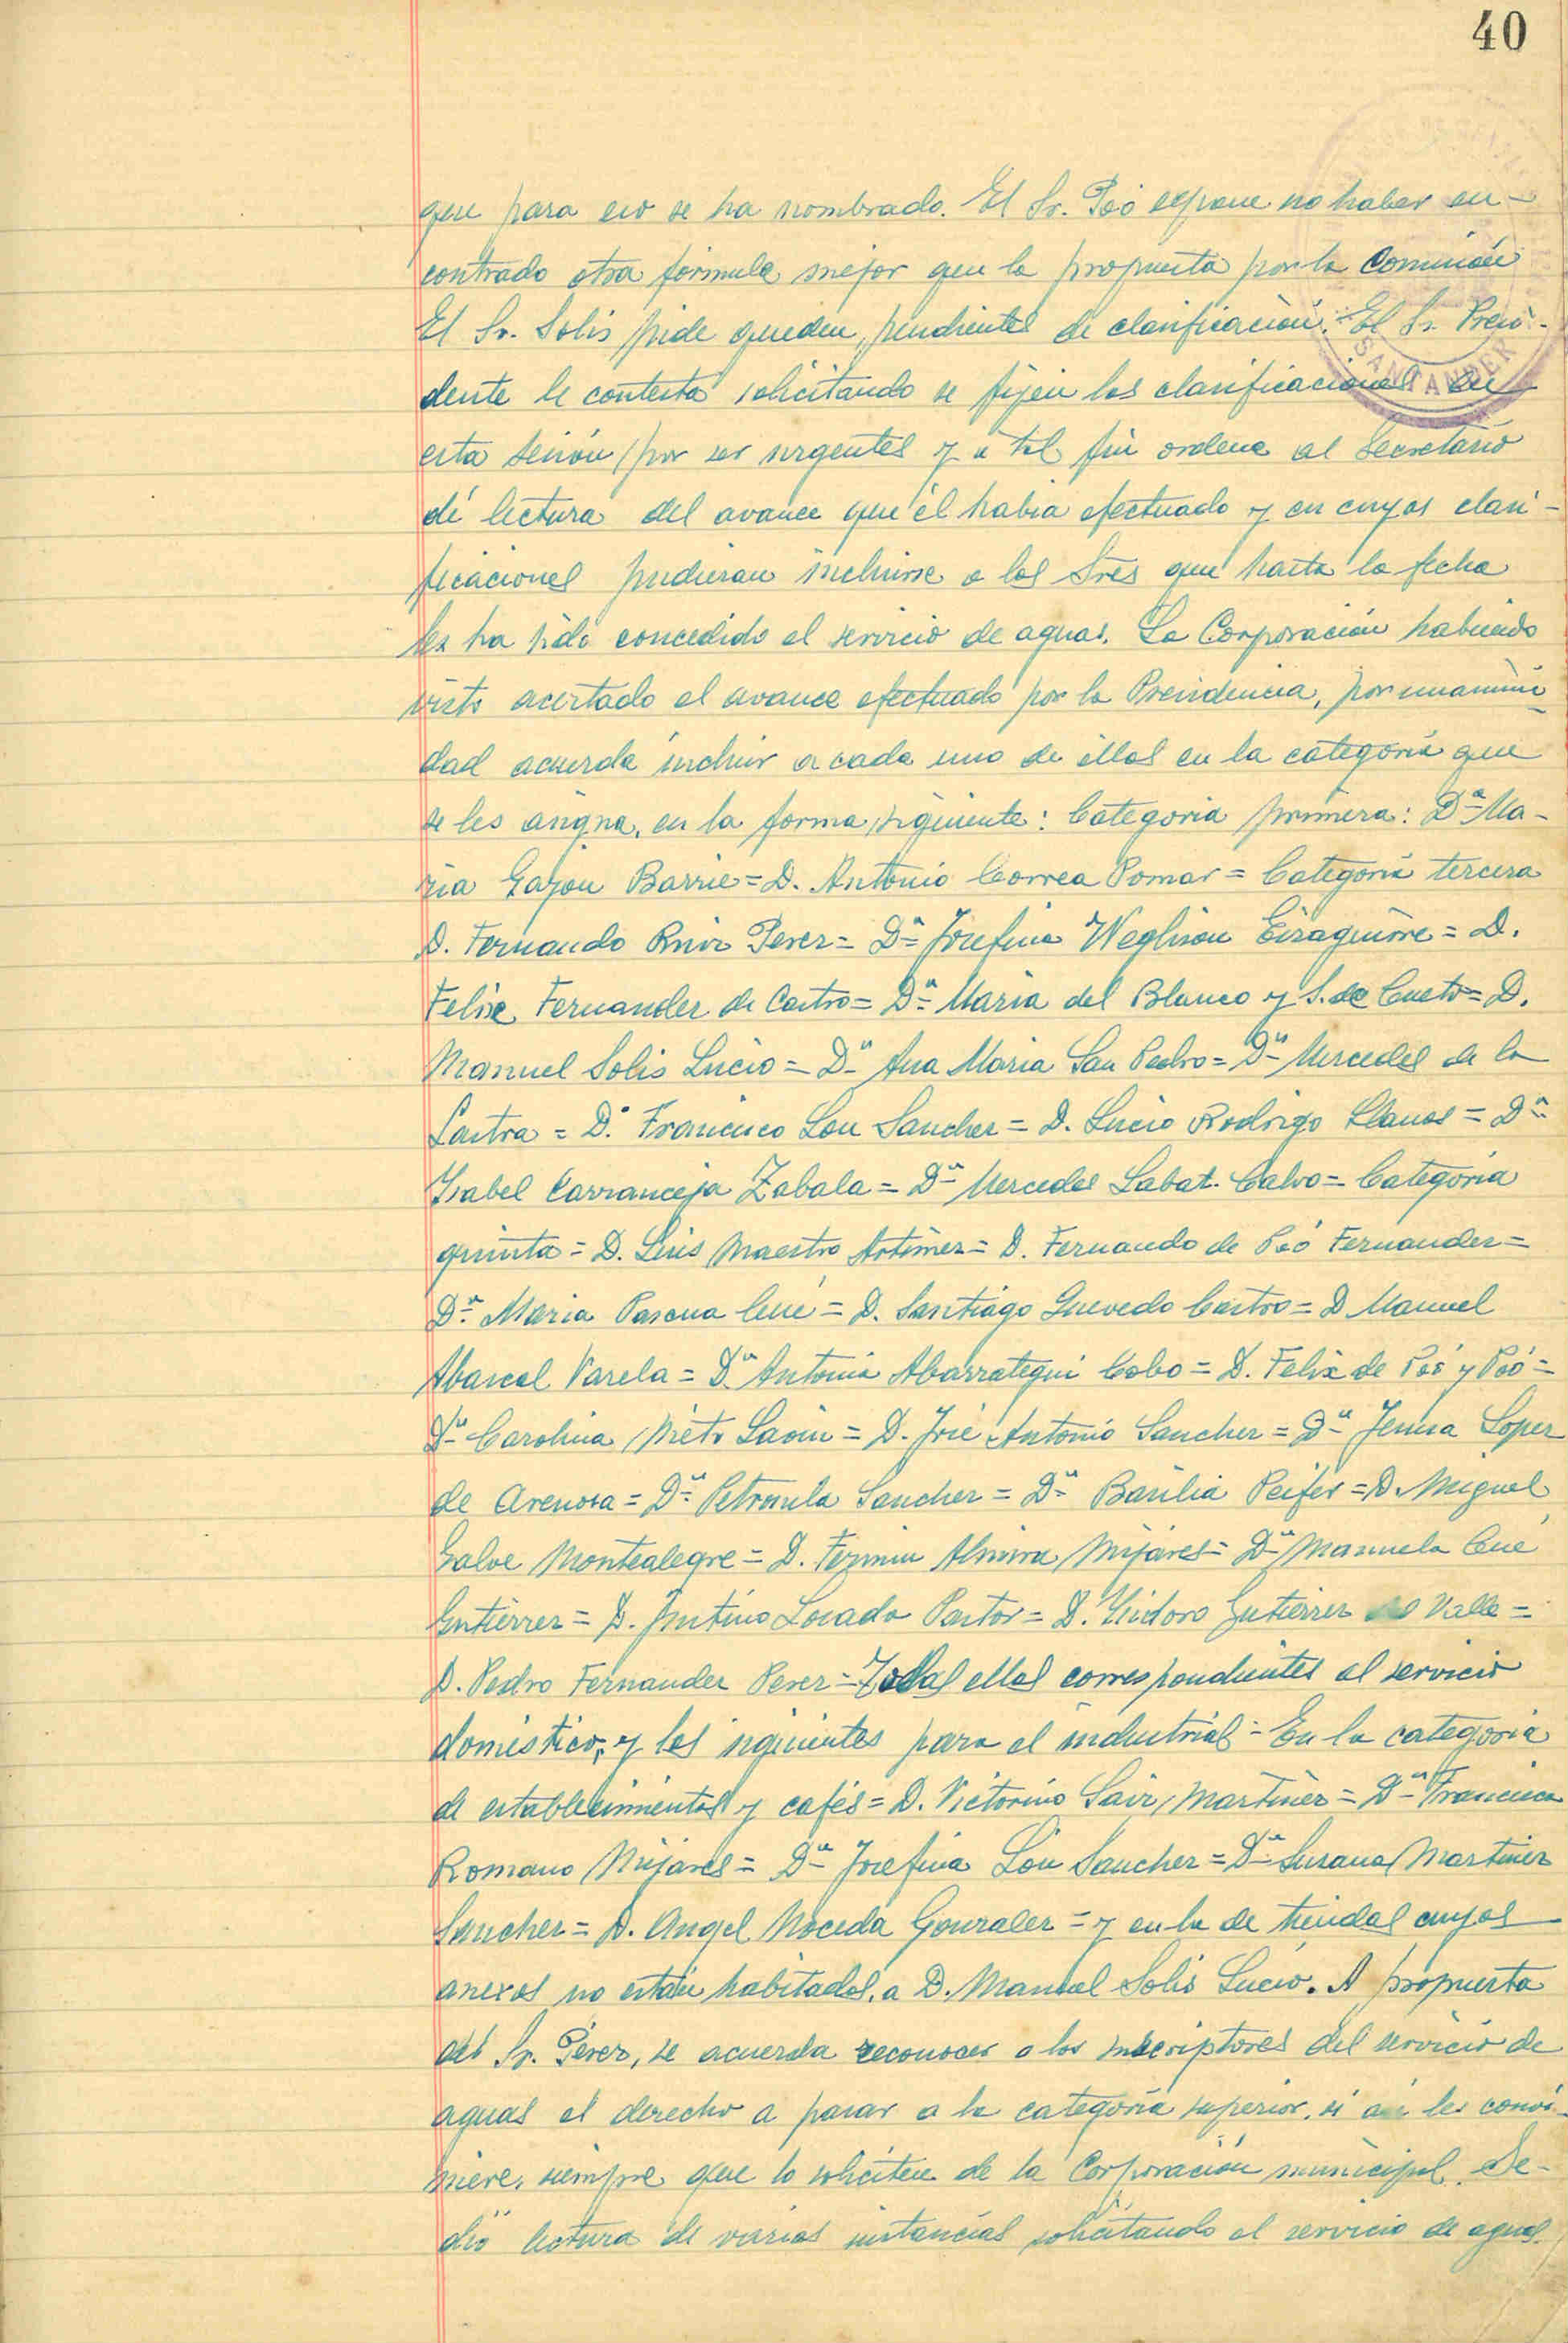 40
SANTANDER
que para eso se ha nombrado. El Sr. Poó expone no haber en-
contrado otra fórmula mejor que la propuesta por la Comisión
El Sr. Solis pide queden pendientes de clasificación. El Sr. Presi-
dente le contesta solicitando se fijen las clasificaciones en
esta sesión por ser urgentes y a tal fin ordena al Secretario
dé lectura del avance que él habia efectuado y en cuyas clasi-
ficaciones pudieran incluirse a los Sres que hasta la fecha
les ha sido concedido el servicio de aguas. La Corporación habiendo
visto acertado el avance efectuado por la Presidencia, por unanimi-
dad acuerda incluir a cada uno de ellos en la categoria que
se les asigna, en la forma siguiente: Categoria primera: Dª Ma-
ria Gayon Barrie = D. Antonio Correa Pomar = Categoria tercera
D. Fernando Ruiz Perez = Dª Josefina Weglison Eizaguirre = D.
Felix Fernandez de Castro = Dª Maria del Blanco y S. de Cueto = D.
Manuel Solis Lucio = Dª Ana Maria San Pedro = Dª Mercedes de la
Lastra = D. Francisco Lou Sanchez = D. Lucio Rodrigo Llanos = Dª
Isabel Carranceja Zabala = Dª Mercedes Labat Calvo = Categoria
quinta = D. Luis Maestro Artimez = D. Fernando de Poó Fernandez =
Dª Maria Pascua Cué = D. Santiago Quevedo Castro = D Manuel
Abascal Varela = Dª Antonia Abarrategui Cobo = D. Felix de Poó y Poó =
Dª Carolina Nieto = D. José Antonio Sanchez = Dª Jesusa Lopez
de Arenosa = Dª Petronila Sanchez = Dª Basilia Peifer = D. Miguel
Galve Montealegre = D. Fermin Mijares = Dª Manuela Cué
Gutiérrez = D. Justino Losada Pastor = D. Isidoro Gutierrez del Valle =
D. Pedro Fernandez Perez = Todas ellas correspondientes al servicio
doméstico, y los siguientes para el industrial = En la categoria
de establecimientos y cafés = D. Victorino Saiz Martinez = Dª Francisca
Romano Mijares = Dª Josefina Lou Sanchez = Dª Susana Martinez
Sanchez = D. Angel Noceda Gonzalez = y en la de tiendas cuyos
anexos no están habitados, a D. Manuel Solis Lucio. A propuesta
del Sr. Pérez, se acuerda reconocer a los suscriptores del servicio de
aguas el derecho a pasar a la categoria superior, si asi les convi-
niere, siempre que lo soliciten de la Corporación municipal. Se-
dió lectura de varias instancias solicitando el servicio de aguas.